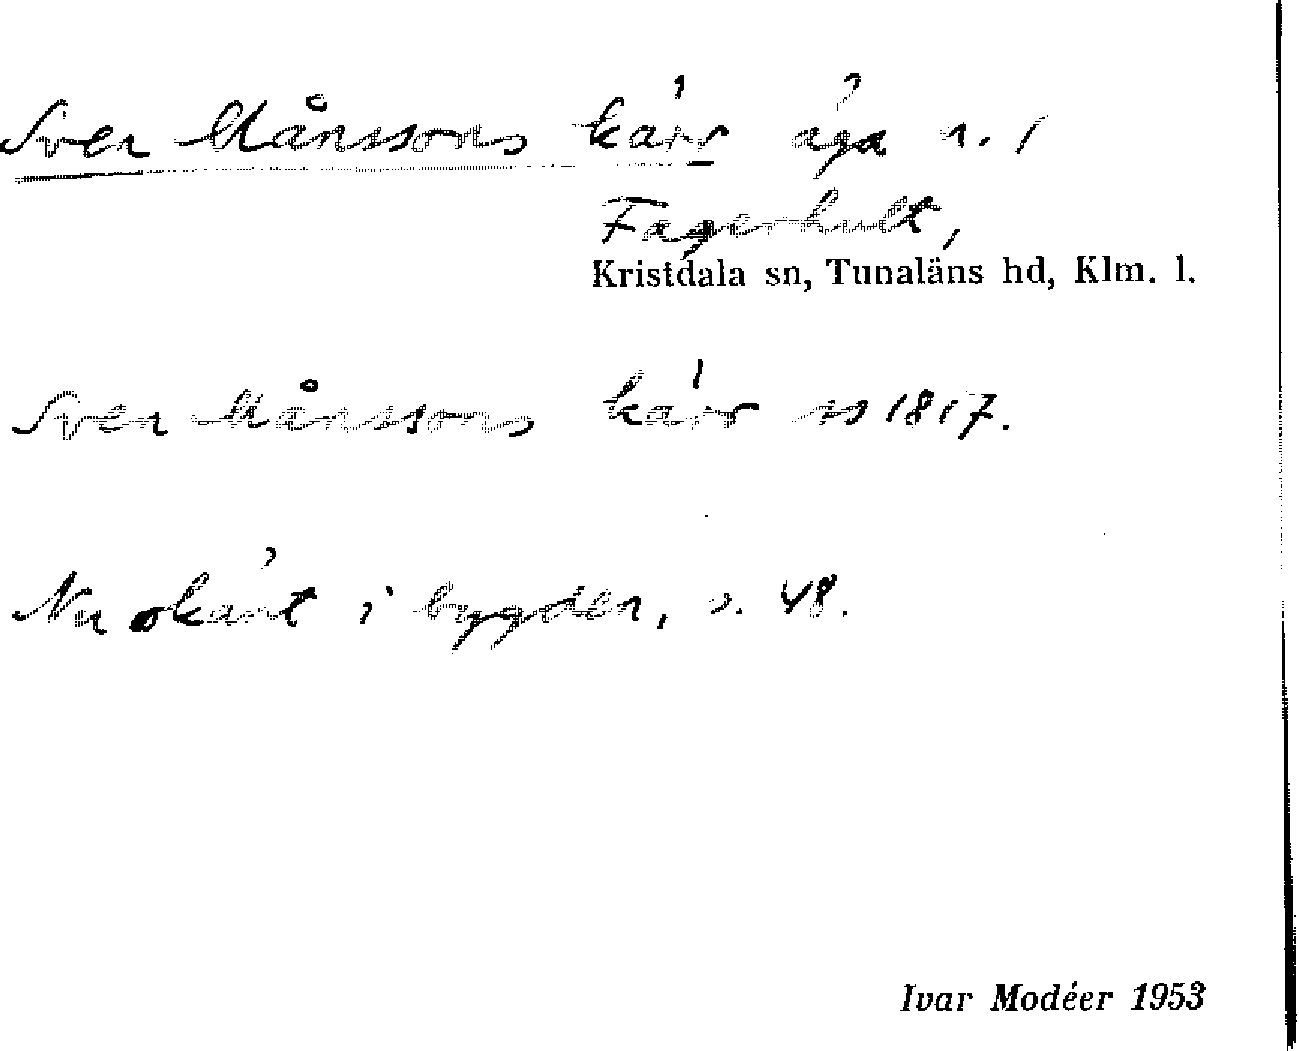 Sven Månssons kärr äga n. 1
Fagerhult,
Kristdala sn, Tunaläns hd, Klm. l.
Sven Månssons kärr ss 1817.
Nu okänt i bygden, s. 48.
Ivar Modéer 1953